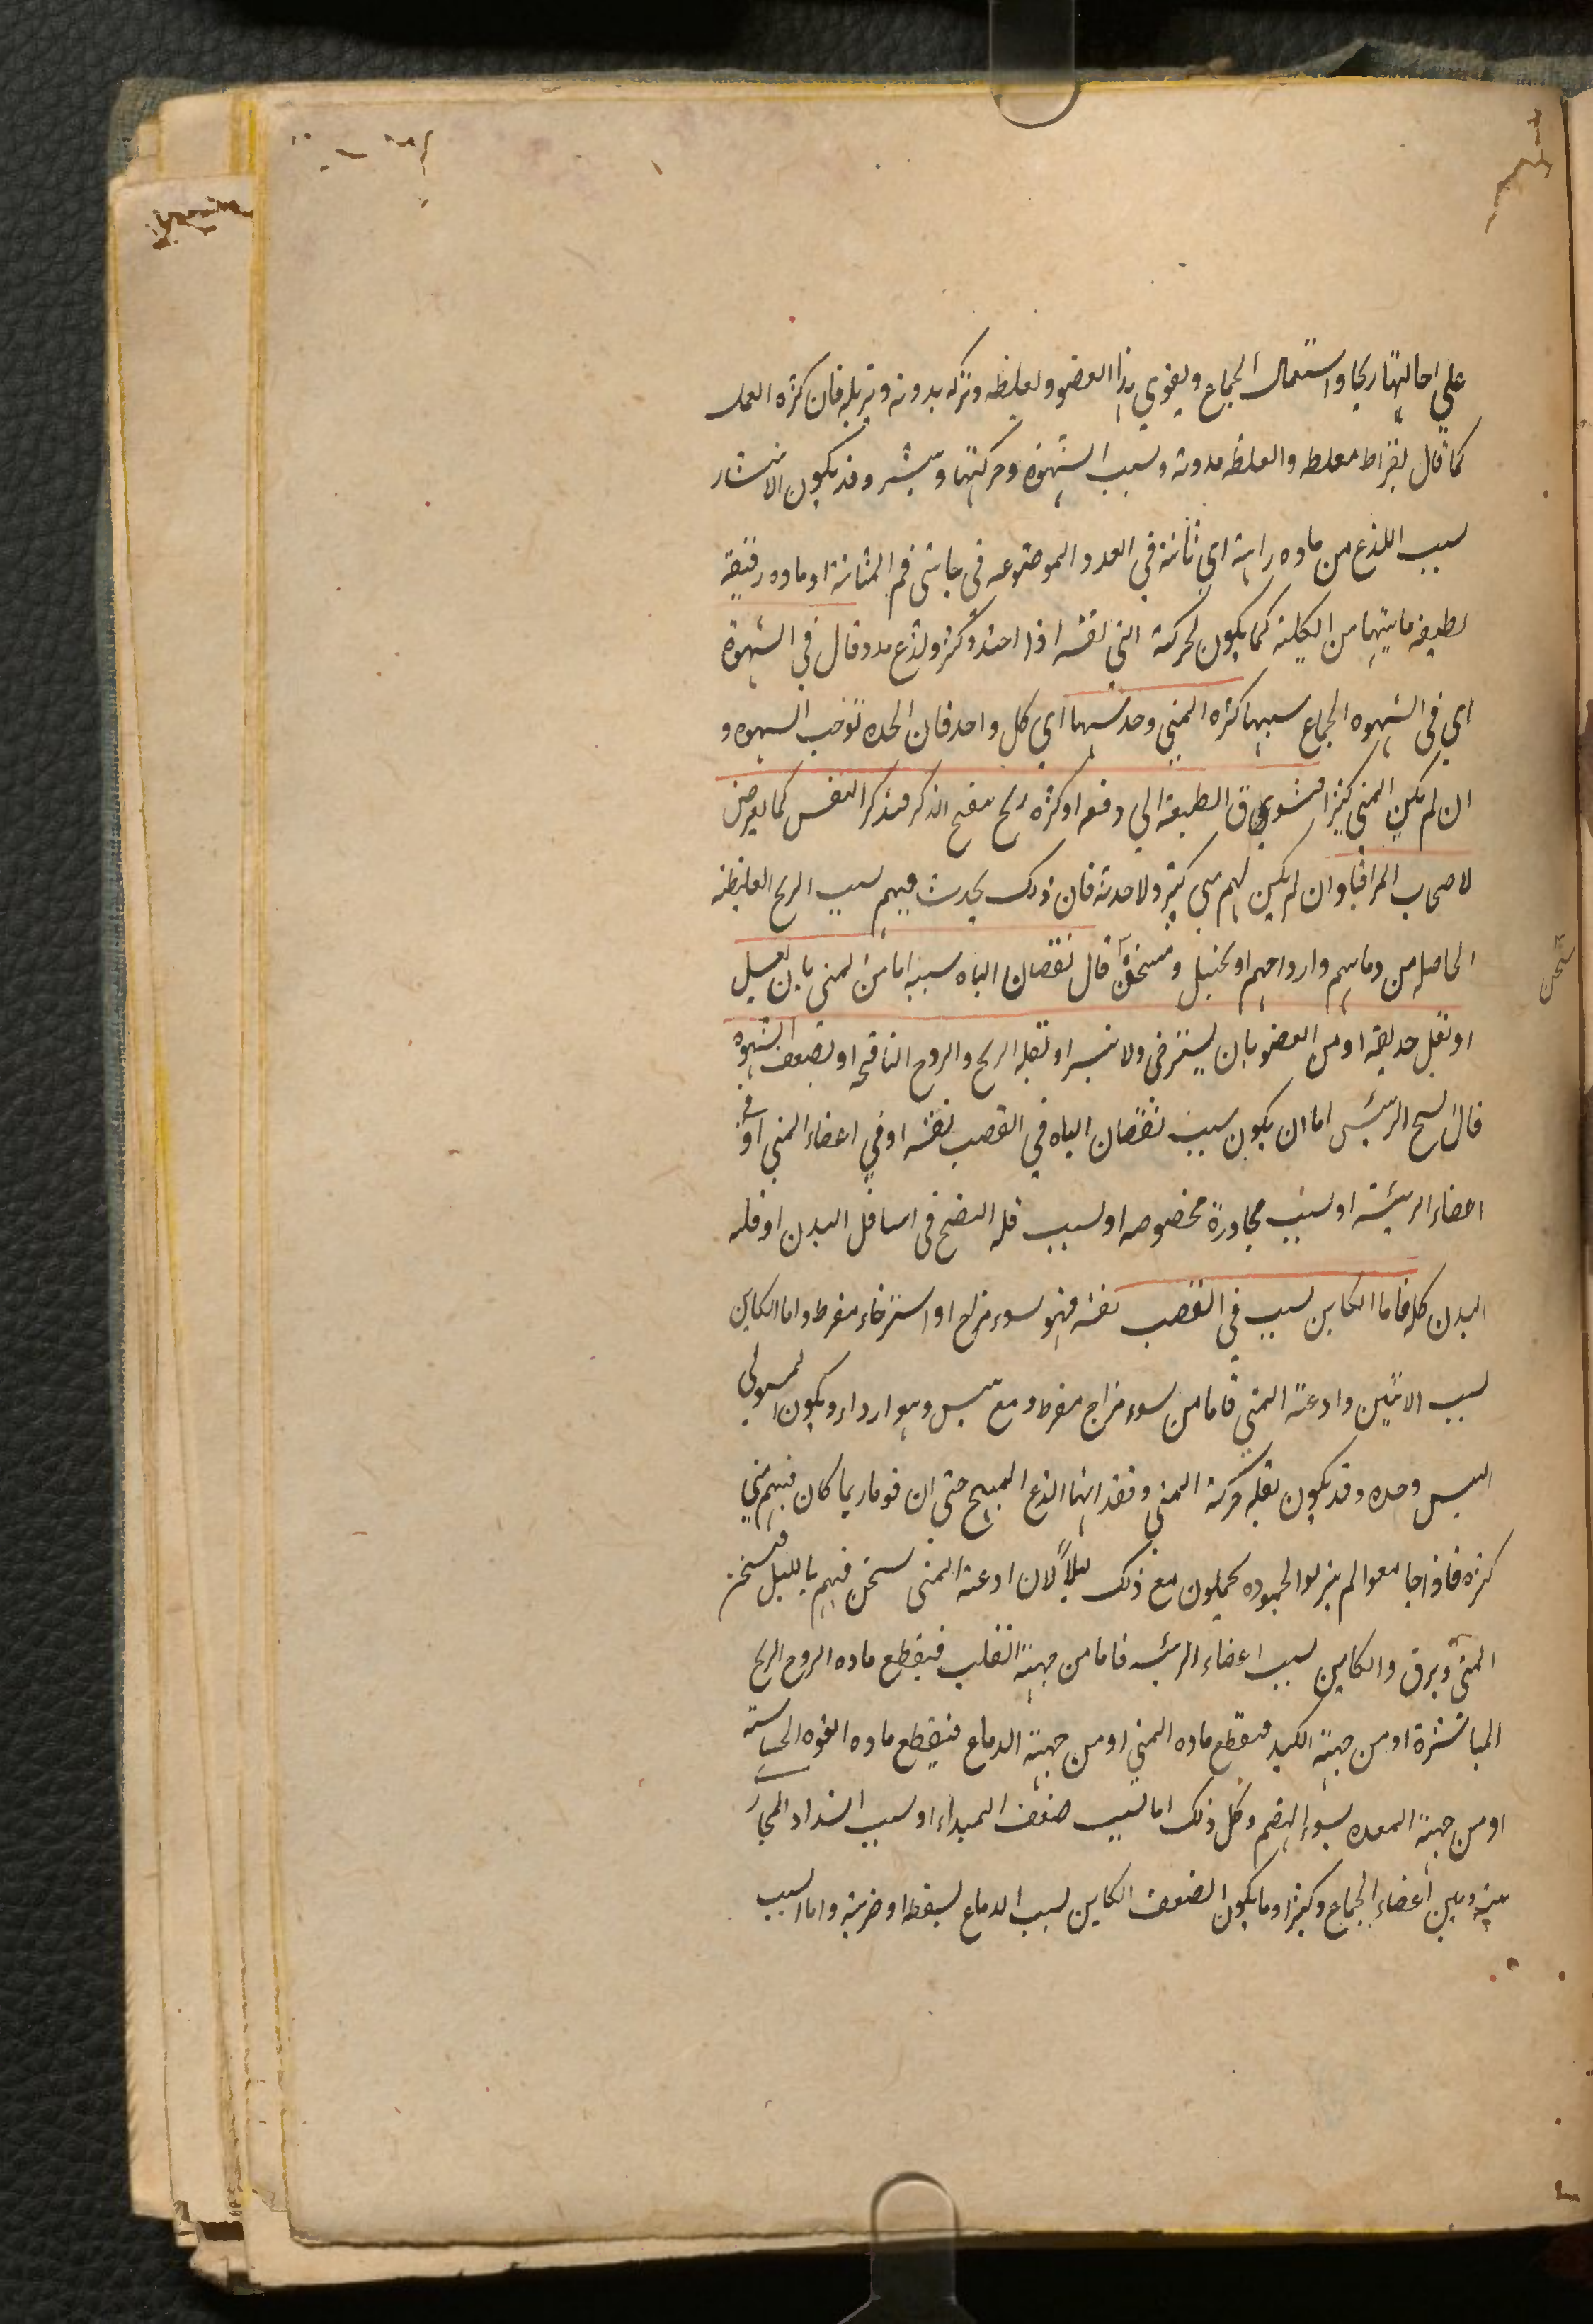 علي احالتها ريحا واستعمال الجماع ويقوي هذا العضو ويغلظه وتركه يذوبه ويزيله فان كثرة العمل
كما قال بقراط مغلظ والعطلة مذوبة وبسبب الشهوة وحركتها وينتشر وقد يكون الانتشار
بسبب اللذع من مادة راهنة اي ثابتة في الغدد الموضوعه في جانبي فم المثانة او ماده رقيقة
لطيفه ماتيتها من الكلية كما يكون لحركة المني نفسه اذا احتد وكثر ولذع مدد قال في الشهوة
اي في الشهوه الجماع سببها كثرة المني وحدتها اي كل واحد فان الحده توجب الشهوه و
ان لم يكن المني كثيرا فيشوق الطبيعة الي دفعه او كثره ريح ينفخ الذكر فيذكر النفس كما يعرض
لاصحاب المراقيا وان لم يكن لهم مني كثير ولا حدته فان ذلك يحدث فيهم بسبب الريح الغليظة
الحاصله من دمائهم وارواحهم او تخيل ومسخن قال نقصان الباه سببه اما من المني بان يقل
او تقل حدته او من العضو بان يسترخي ولا ينتشر او لقلة الريح والروح النافخه او لضعف الشهوه
قال الشيخ الرئيس اما ان يكون سبب نقصان الباه في القضيب نفسه او في اعضاء المني او في
اعضاء الرئيسة او بسبب مجاورة مخصوصه او بسبب قله النضج في اسافل البدن او قله
البدن كله فاما الكاين بسبب في القضيب نفسه فهو سوء مزاج او استرخاء مفرط واما الكاين
بسبب الانثيين واوعية المني فاما من سوء مزاج مفرد ومع يبس وهو اردا او يكون المستولي
اليبس وحده وقد يكون لقلة حركة المني وفقدانها اللذع المهيج حتي ان قوما ربما كان فيهم مني
كثيره فاذا جامعوا لم ينزلوا لجموده يحتلمون مع ذلك ليلا لان اوعية المني تسخن فيهم بالليل فيسخن
المني ويرق والكاين بسبب اعضاء الرئيسه فاما من جهة القلب فينقطع ماده الروح الريح
الناشرة او من جهة الكبد فينقطع ماده المني او من جهة الدماغ فينقطع ماده القوه الحساسة
او من جهة المعده لسوء الهضم وكل ذلك اما بسبب ضعف المبداء او بسبب انسداد المجار
بينه وبين اعضاء الجماع وكثيرا وما يكون الضعف الكاين بسبب الدماغ لسقطه او ضربة واما السبب